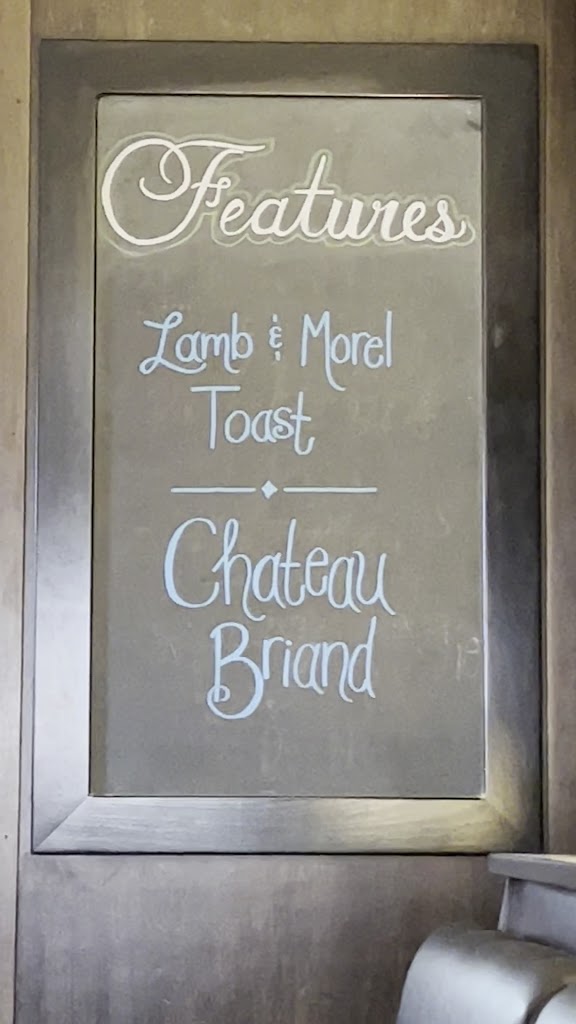 Features
Lamb & Morel
Toast
Chateau
Briand